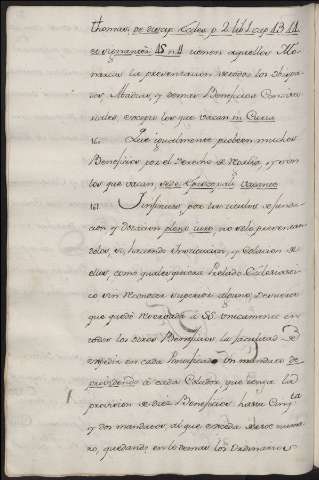 thomas, de discip. Eccles. p. 2. lib. 1. cap. 43. 44.
et signanter 45. n. 4 tienen aquellos Mo-
narcas la presentacion de todos los Obispa-
dos, Abadias, y demas Beneficios Consisto-
riales, excepto los que vacan in Curia
16. Que igualmente proveen muchos
Beneficios por el derecho de Regalia, y son
los que vacan, sede Episcopali vacante
161. Inferiores por los titulos de funda-
cion y dotacion pleno iure, no solo presentan-
dolos, si, haciendo Institucion, y Colacion de
ellos, como qualesquiera Prelado Eclesiasti-
co sin reconocer superior alguno, de manera
que quedò reservada à SS. unicamente en
todos los otros Beneficios la facultad de
expedir en cada Pontificado un mandato de
providendo à cada Colador que tenga la
provision de diez Beneficios hasta Cinq.ta
y dos mandatos, al que exceda de este nume-
ro, quedando en lo demas los Ordinarios